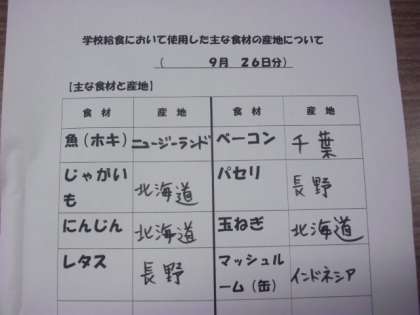 学校給食において使用した主な食材の産地について
(　9月　26日分)
【主な食材と産地】
食材　産地　食材　産地
魚(ホキ)　ニュージーランド　ベーコン　千葉
じゃがいも　北海道　パセリ　長野
にんじん　北海道　玉ねぎ　北海道
レタス　長野　マッシュルーム(缶)　インドネシア